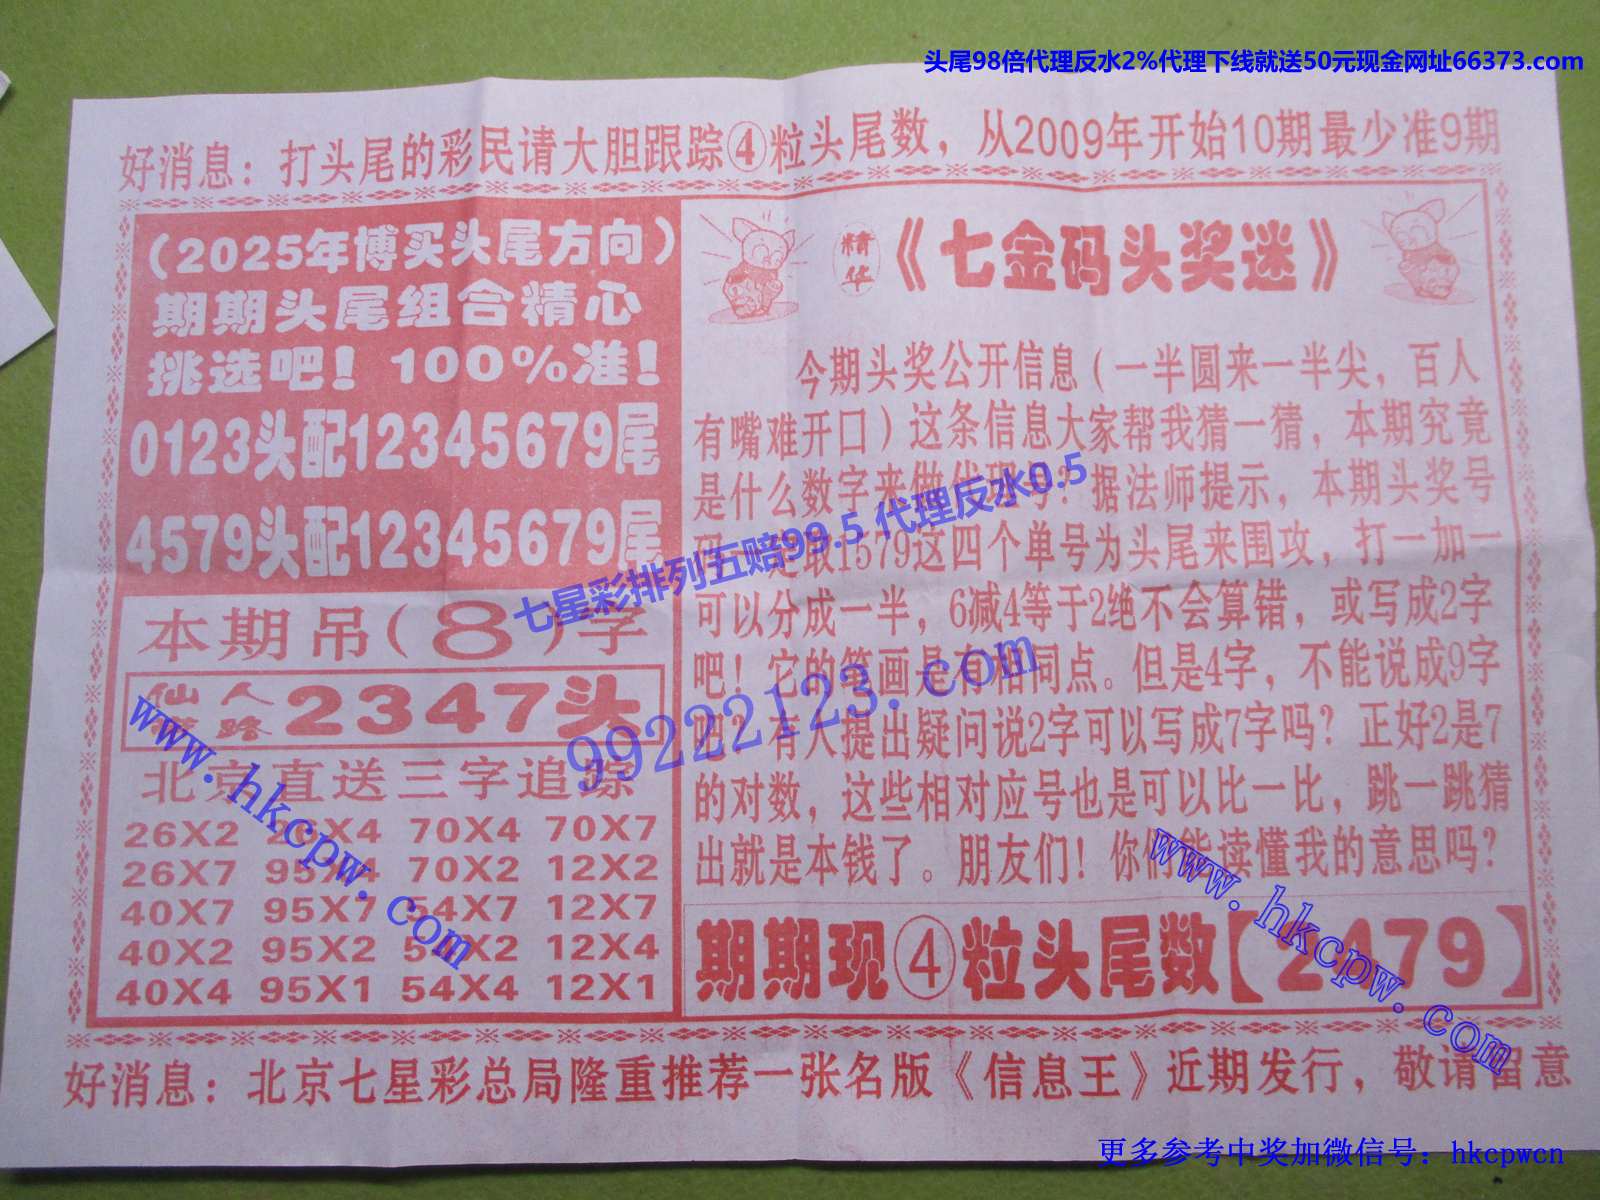 头尾98倍代理反水2%代理下线就送50元现金网址66373.com
好消息：打头尾的彩民请大胆跟踪④粒头尾数，从2009年开始10期最少准9期
（2025年博买头尾方向）
期期头尾组合精心
挑选吧！100%准！
0123头配12345679尾
4579头配12345679尾
本期吊（8）字
仙人
路
2347头
北京直送三字追踪
26X2 26X4 70X4 70X7
26X7 95X4 70X2 12X2
40X7 95X7 54X7 12X7
40X2 95X2 54X2 12X4
40X4 95X1 54X4 12X1
精华
《七金码头奖迷》
今期头奖公开信息（一半圆来一半尖，百人
有嘴难开口）这条信息大家帮我猜一猜，本期究竟
是什么数字来做代理号？据法师提示，本期头奖号
取1579这四个单号为头尾来围攻，打一加一
可以分成一半，6减4等于2绝不会算错，或写成2字
吧！它的笔画是有相同点。但是4字，不能说成9字
吧？有人提出疑问说2字可以写成7字吗？正好2是7
的对数，这些相对应号也是可以比一比，跳一跳猜
出就是本钱了。朋友们！你们能读懂我的意思吗？
期期现④粒头尾数【2479】
好消息：北京七星彩总局隆重推荐一张名版《信息王》近期发行，敬请留意
七星彩排列五赔99.5 代理反水0.5
99222123.com
www.hkcpw.com
www.hkcpw.com
更多参考中奖加微信号：hkcpwcn